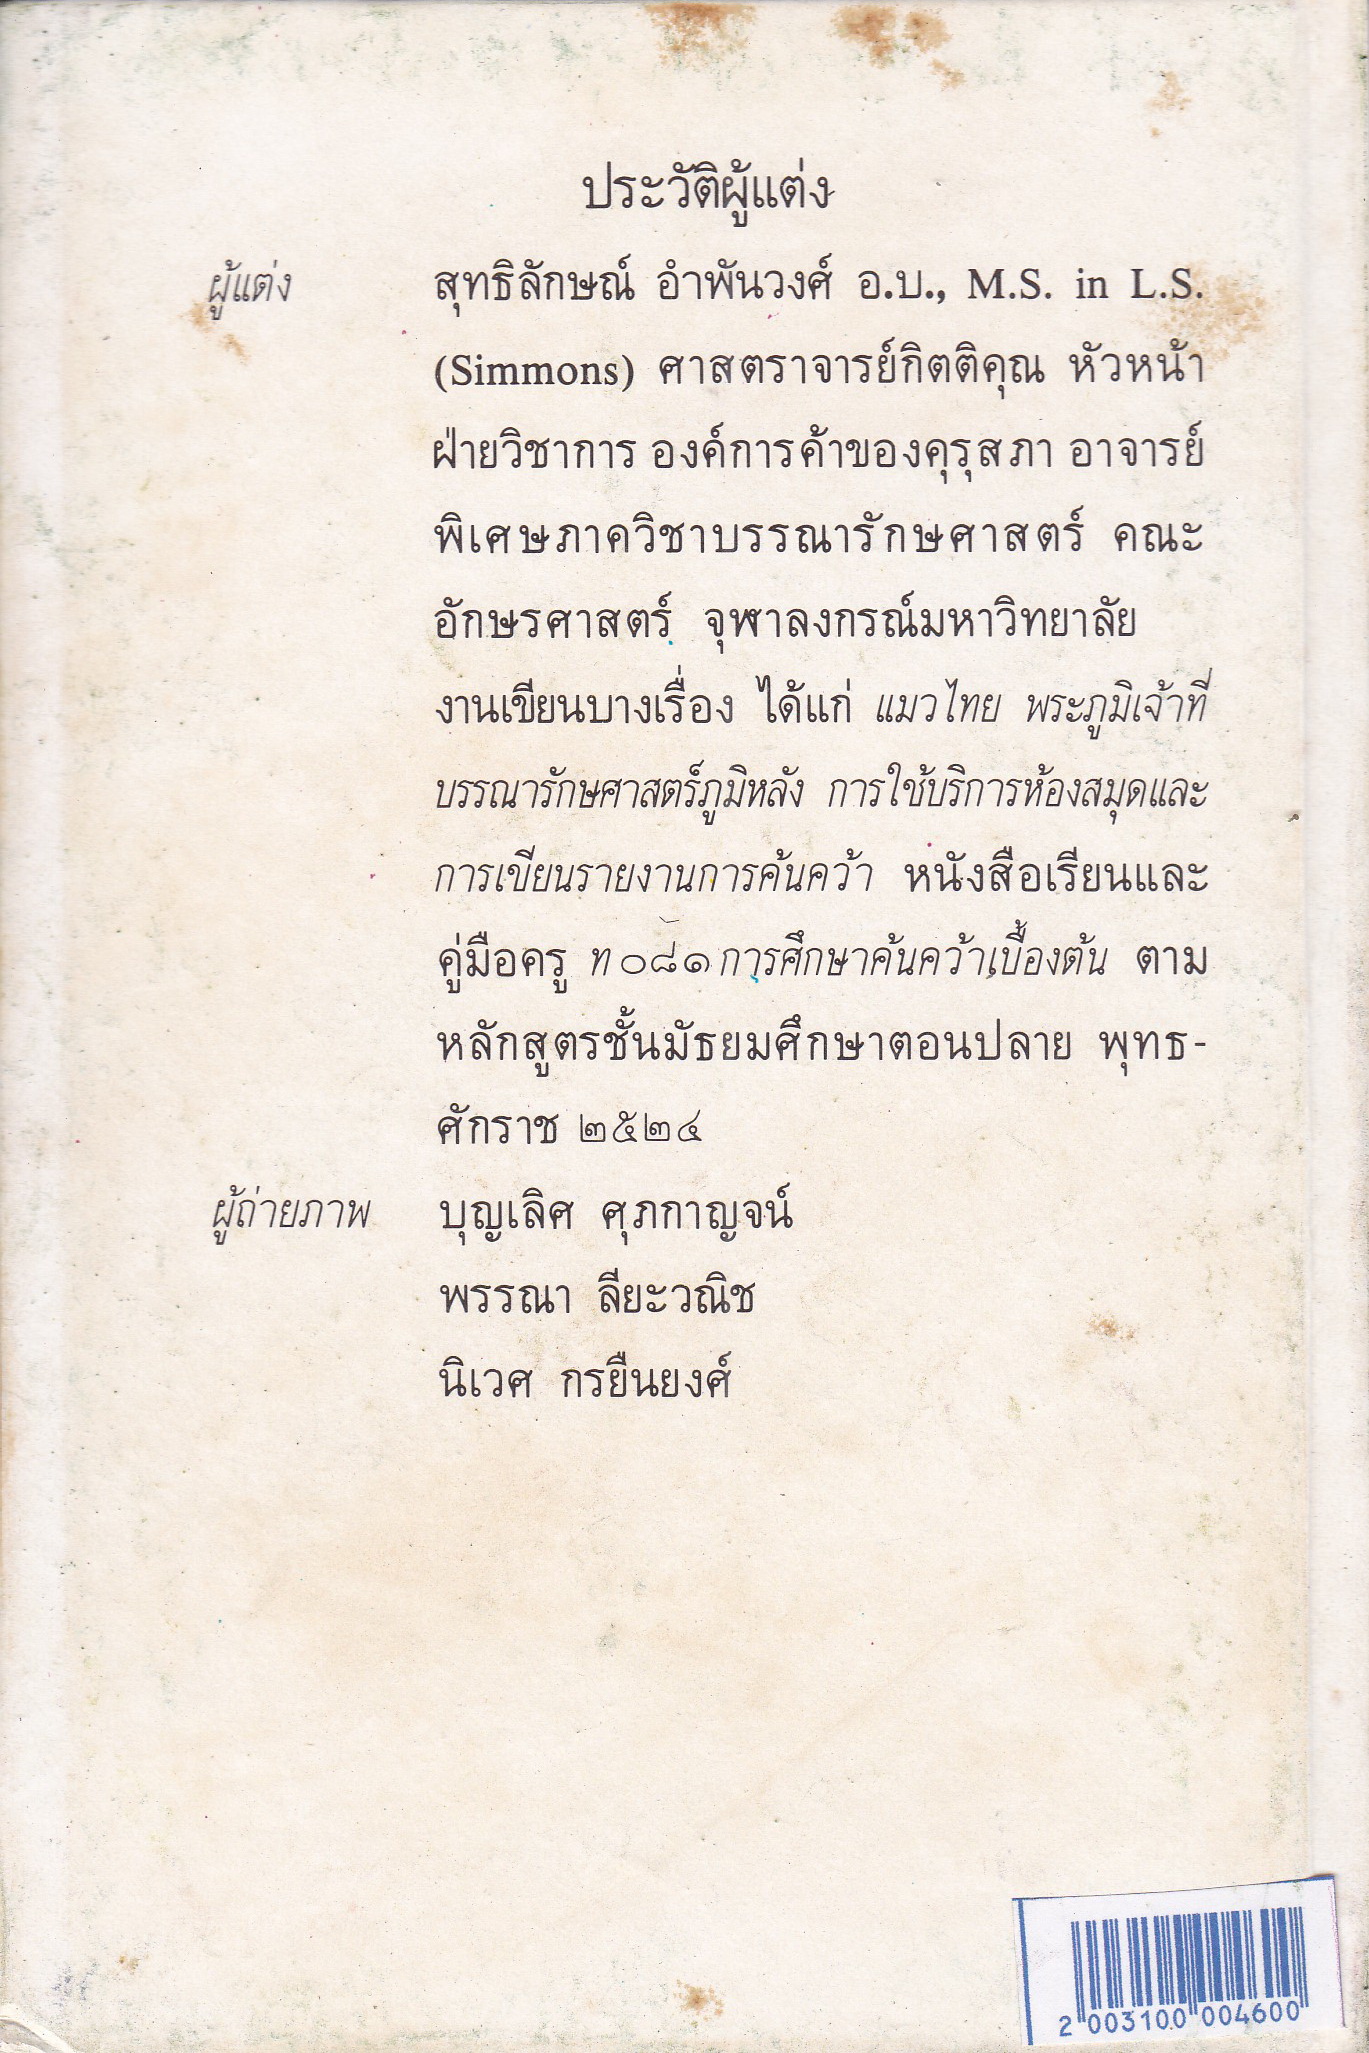 ประวัติผู้แต่ง
ผู้แต่ง สุทธิลักษณ์ อำพันวงศ์ อ.บ., M.S. in L.S.
(Simmons) ศาสตราจารย์กิตติคุณ หัวหน้า
ฝ่ายวิชาการ องค์การค้าของคุรุสภา อาจารย์
พิเศษภาควิชาบรรณารักษศาสตร์ คณะ
อักษรศาสตร์ จุฬาลงกรณ์มหาวิทยาลัย
งานเขียนบางเรื่อง ได้แก่ แมวไทย พระภูมิเจ้าที่
บรรณารักษศาสตร์ภูมิหลัง การใช้บริการห้องสมุดและ
การเขียนรายงานการค้นคว้า หนังสือเรียนและ
คู่มือครู ท ๐๘๑ การศึกษาค้นคว้าเบื้องต้น ตาม
หลักสูตรชั้นมัธยมศึกษาตอนปลาย พุทธ-
ศักราช ๒๕๒๔
ผู้ถ่ายภาพ บุญเลิศ ศุภกาญจน์
พรรณา ลียะวณิช
นิเวศ กรยืนยงศ์
2 003100 004600